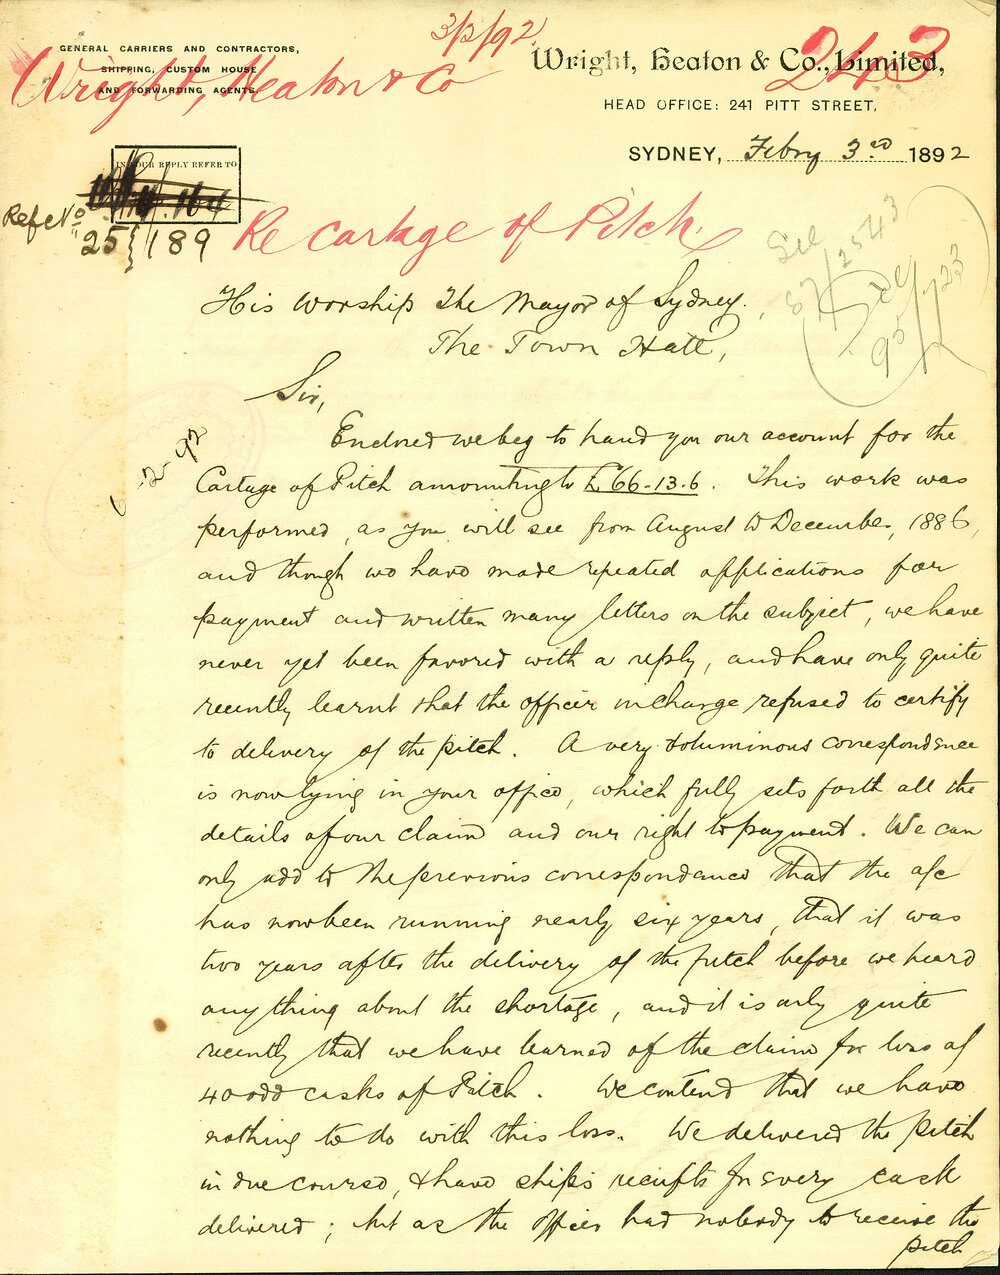 3/2/92
243
GENERAL CARRIERS AND CONTRACTORS,
SHIPPING, CUSTOM HOUSE
AND FORWARDING AGENTS
Wright, Heaton & Co
Wright, Heaton & Co., Limited,
HEAD OFFICE: 241 PITT STREET,
SYDNEY, Febry 3rd 1892
IN YOUR REPLY REFER TO
Refce No
25 } 189
Re cartage of Pitch.
See
87/2543
95/723
His Worship The Mayor of Sydney,
The Town Hall,
Sir,
6-2-92
Enclosed we beg to hand you our account for the
Cartage of Pitch amounting to £66-13-6. This work was
performed, as you will see from August to December, 1886,
and though we have made repeated applications for
payment and written many letters on the subject, we have
never yet been favored with a reply, and have only quite
recently learnt that the officer in charge refused to certify
to delivery of the pitch. A very voluminous correspondence
is now lying in your office, which fully sets forth all the
details of our claim and our right to payment. We can
only add to the previous correspondence that the a/c
has now been running nearly six years, that it was
two years after the delivery of the pitch before we heard
anything about the shortage, and it is only quite
recently that we have learned of the claim for loss of
40 odd casks of Pitch. We contend that we have
nothing to do with this loss. We delivered the pitch
in due course, & have ship's receipts for every cask
delivered; but as the officer had nobody to receive the
pitch